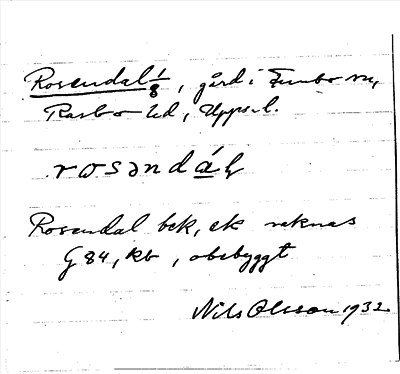 Rosendal 1/8, gård i Funbo sn,
Rasbo hd, Upps. l.
rosəndáḷ
Rosendal bek, ek saknas
G 84, kb, obebyggt
Nils Olsson 1932